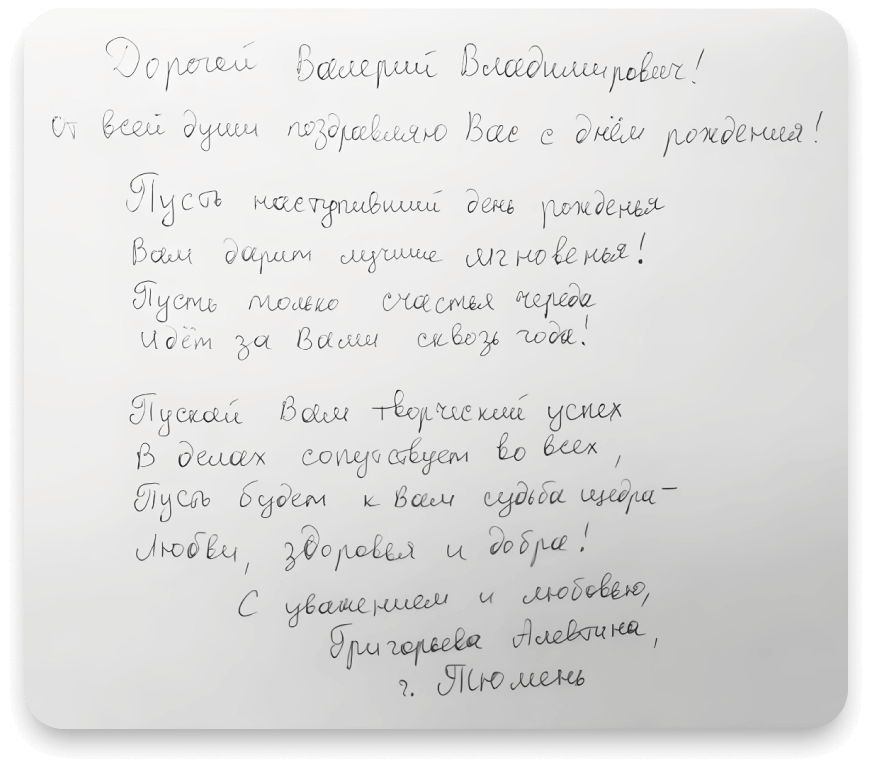 Дорогой Валерий Владимирович!
От всей души поздравляю Вас с днём рождения!
Пусть наступивший день рожденья
Вам дарит лучшие мгновенья!
Пусть только счастья череда
Идёт за Вами сквозь года!
Пускай Вам творческий успех
В делах сопутствует во всех,
Пусть будет к Вам судьба щедра-
Любви, здоровья и добра!
С уважением и любовью,
Григорьева Алевтина,
г. Тюмень